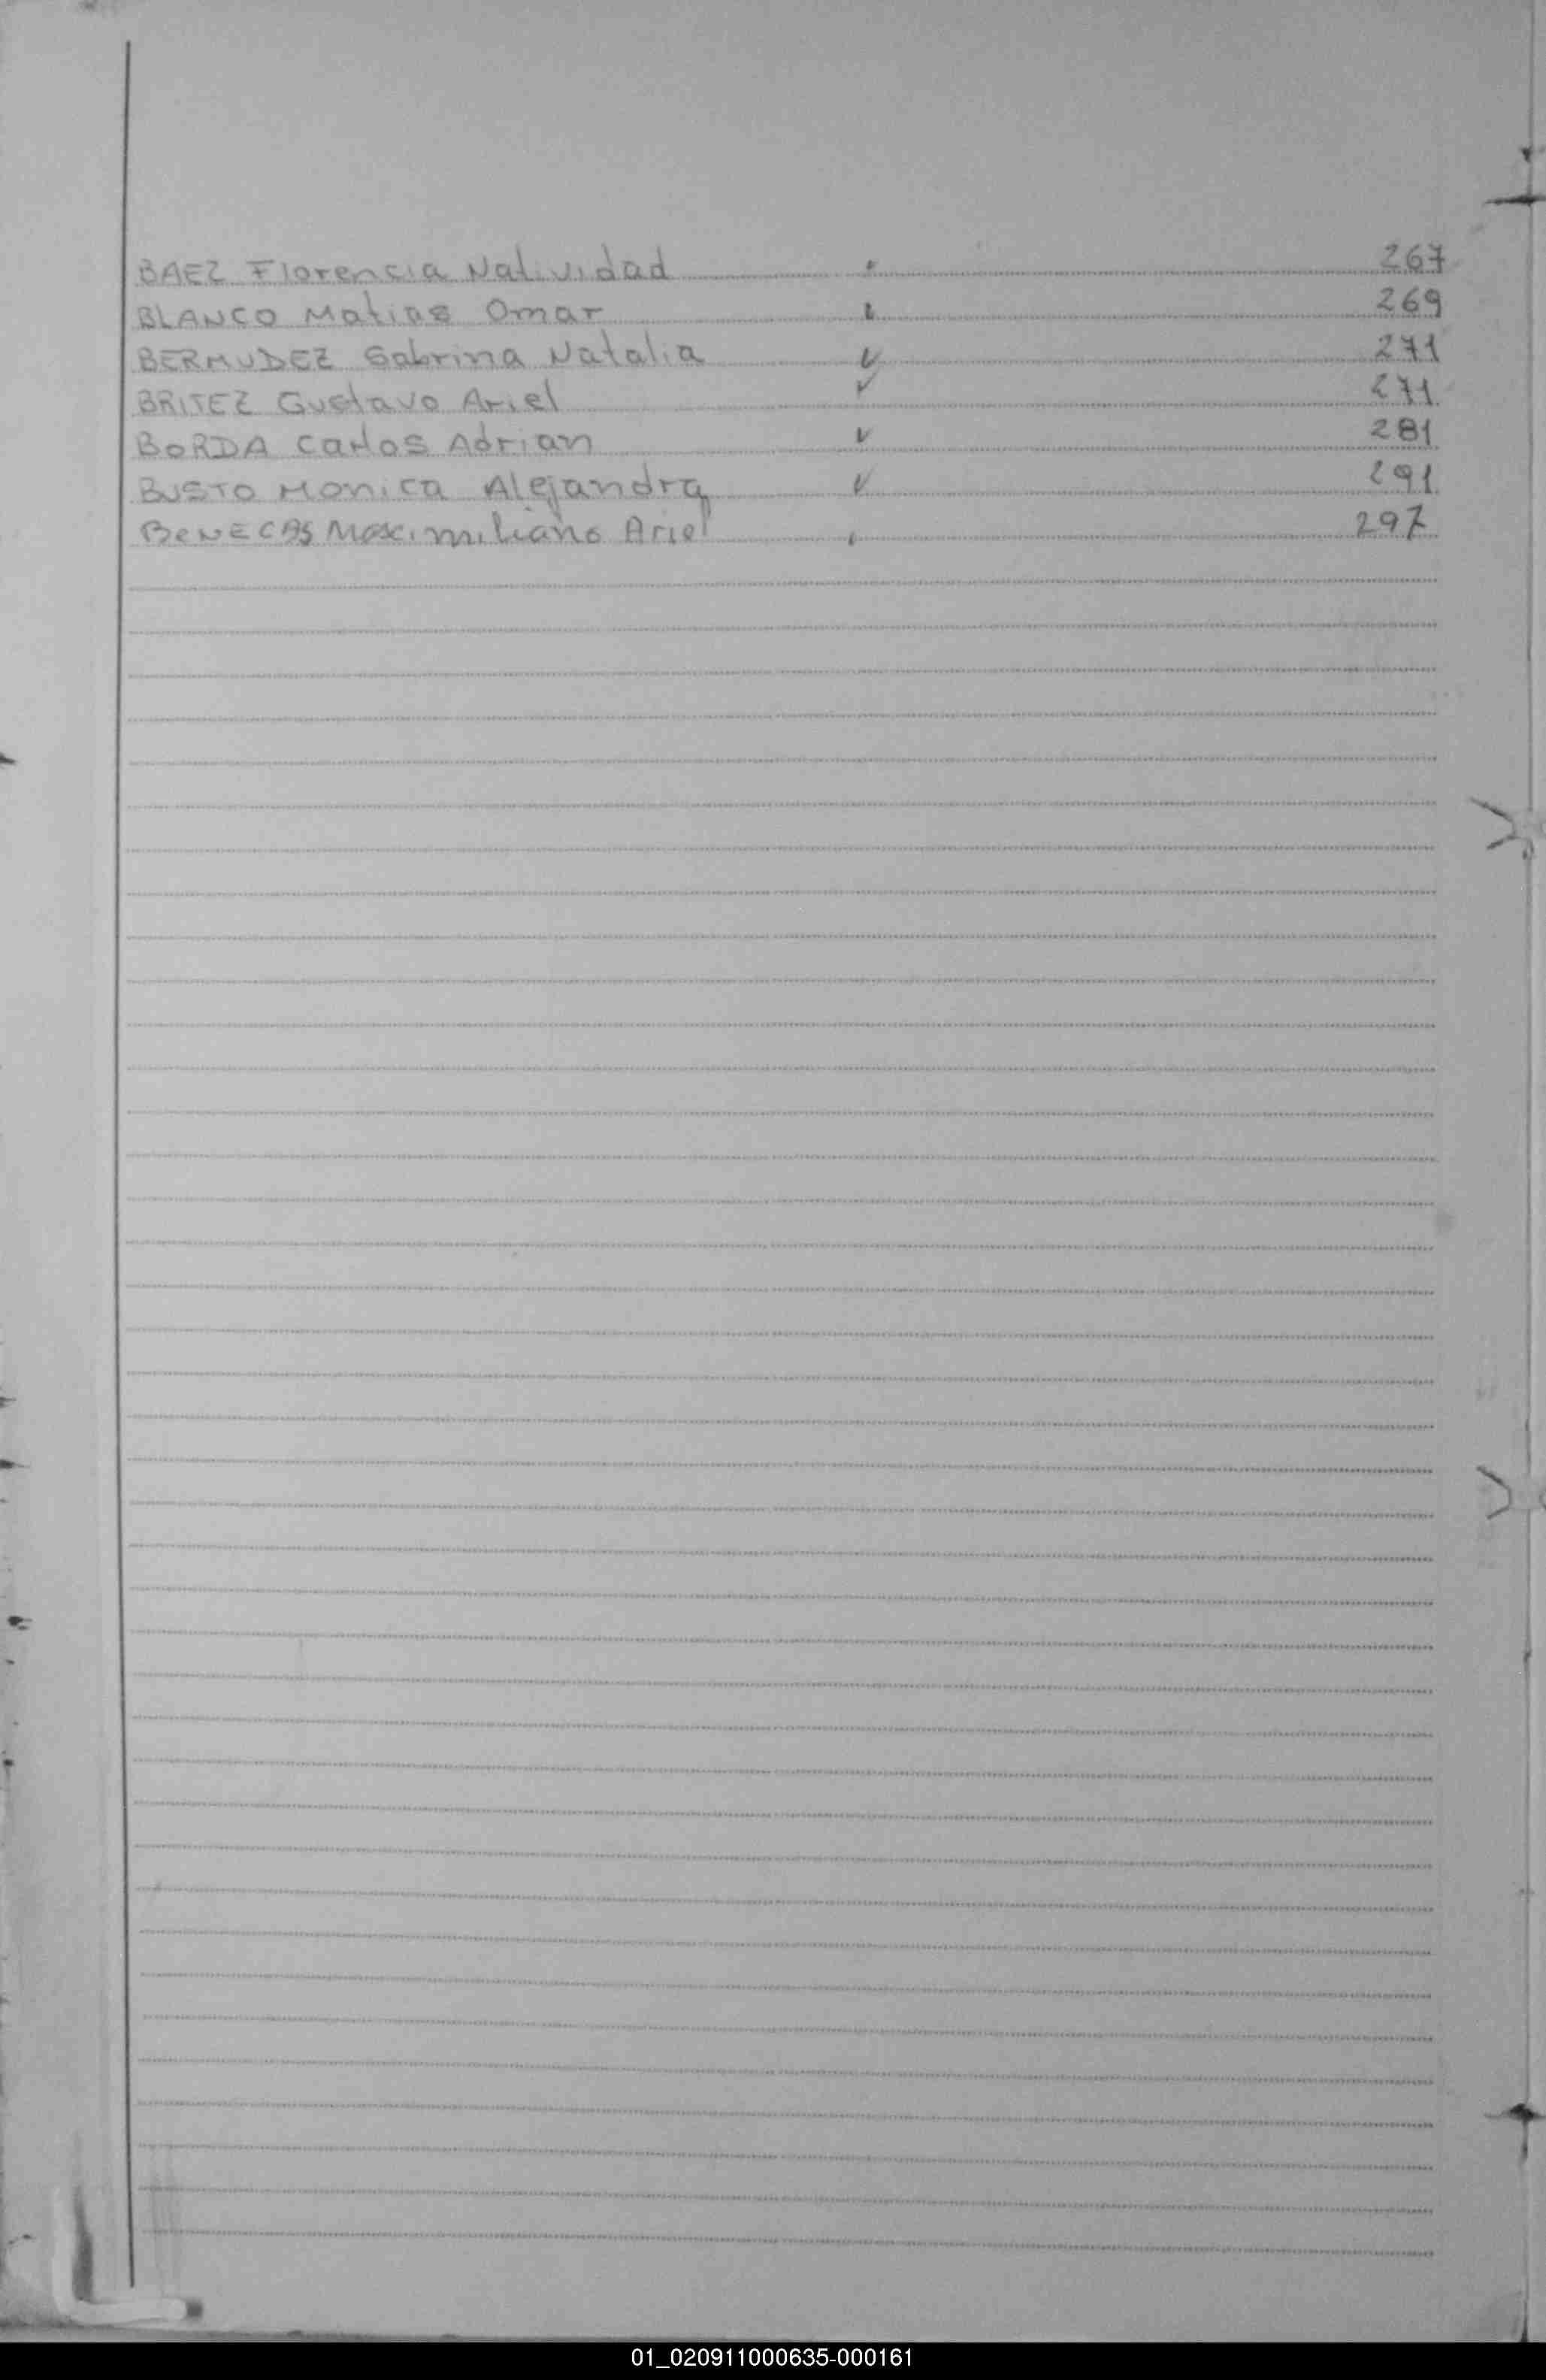 BAEZ Florencia Natividad 267
BLANCO Matias Omar 269
BERMUDEZ Sabrina Natalia ✓ 271
BRITEZ Gustavo Ariel ✓ 271
BORDA Carlos Adrian ✓ 281
BUSTO Monica Alejandra ✓ 291
BeNECAS Maximiliano Ariel 297
01_020911000635-000161